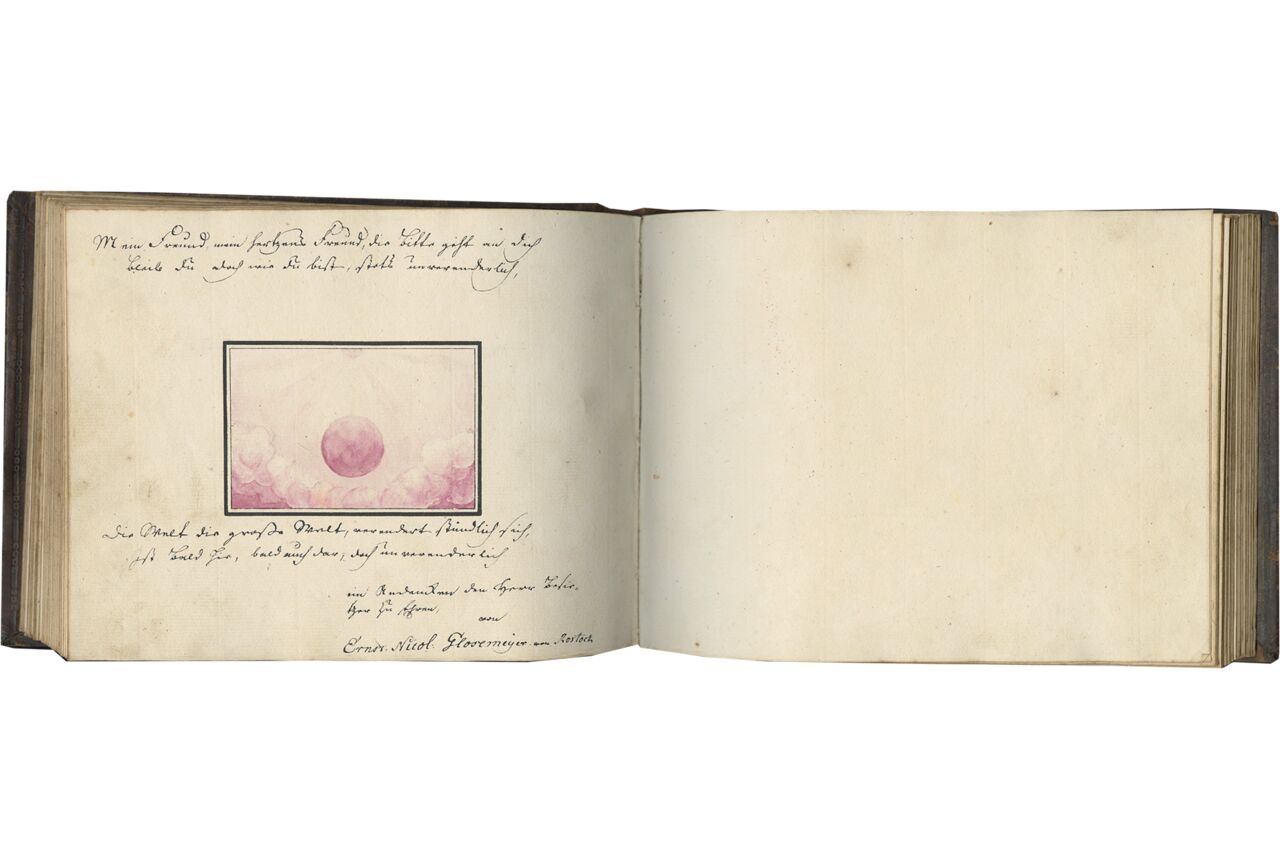 Mein Freund, mein hertzens Freund, die bitte geht an dich
bleib du doch wie du bist, stets unverenderlich,
Die Welt die große Welt, verendert stündlich sich,
ist bald hie, bald auch dar, doch unverenderlich
im Andencken den Herr Besit-
tzer zu Ehren,
von
Ernst. Nicol. Glosemeijer von Rostock
7